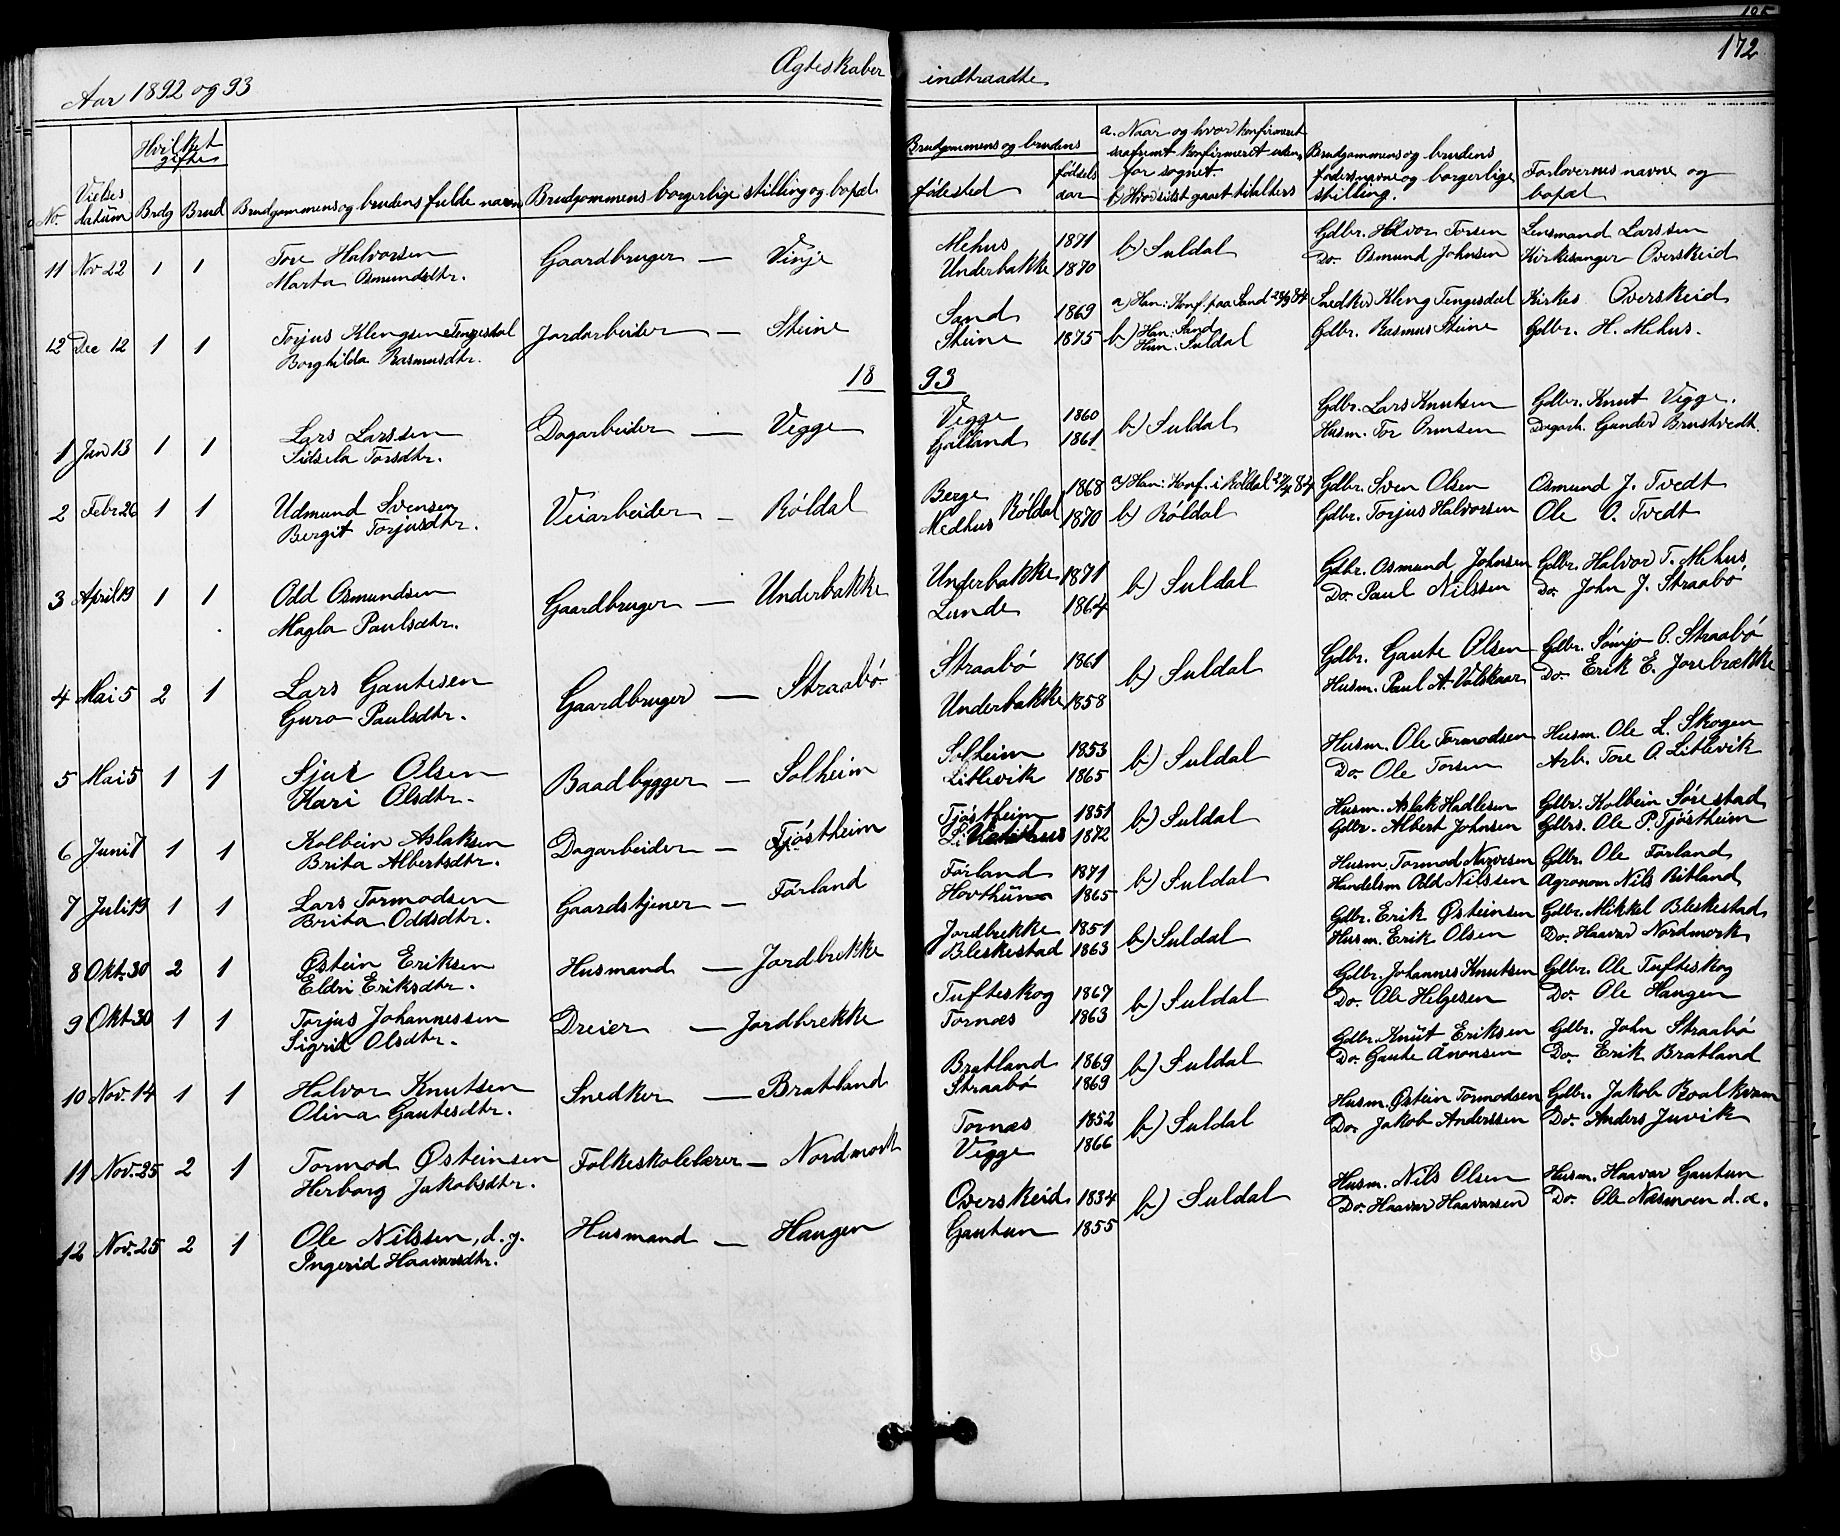 172
Ægteskaber indtraadte
Aar 1892 og 93
No. Vielses datum Hvilket gifte Brdg Brud Brudgommens og brudens fulde navn Brudgommens borgerlige stilling og bopæl Brudgommens og brudens fødested fødselsaar a. Naar og hvor konfirmeret forsaavidt konfirmeret udenfor sognet. b) Hvor sidst gaaet tilalters Brudgommens og brudens fædersnavne og borgerlige stilling. Forlovernes navne og bopæl
11 Nov 22 1 1 Tore Halvorsen Gaardbruger — Vinje Mehus 1871 b) Suldal Gdbr. Halvor Torsen Lensmand Larssen
Marta Osmundsdtr. Underbakke 1870 Do. Osmund Johnsen Kirkesanger Overskeid
12 Dec 12 1 1 Torjus Klengsen Tengesdal Jordarbeider — Steine Sand 1869 a) Han: Konf. paa Sand 28/9 84 Snedker Kleng Tengesdal Kirkes Overskeid
Borghilda Rasmusdtr. Steine 1875 b) Han: Sand Hun: Suldal Gdbr. Rasmus Steine Gdbr. H. Mehus.
18 93
1 Jan 13 1 1 Lars Larssen Dagarbeider — Vegge Vegge 1860 b) Suldal Gdbr. Lars Knutsen Gdbr. Knut Vegge.
Sidsela Torsdtr. Gjalland 1861 Husm. Tor Ormsen Dagarb. Gunder Brustvedt.
2 Febr. 26 1 1 Udmund Svensen Veiarbeider — Røldal Berge Røldal 1868 a) Han: Konf. i Røldal 84 Gdbr. Sven Olsen Osmund J. Tvedt
Bergit Torjusdtr. Medhus 1870 b) Røldal Gdbr. Torjus Halvorsen Ole O. Tvedt
3 April 19 1 1 Odd Osmundsen Gaardbruger — Underbakke Underbakke 1871 b) Suldal Gdbr. Osmund Johnsen Gdbr. Halvor T. Mehus,
Magla Paulsdtr. Lunde 1864 Do. Paul Nilssen Do. John J. Straabø
4 Mai 5 2 1 Lars Gautesen Gaardbruger — Straabø Straabø 1861 b) Suldal Gdbr. Gaute Olsen Gdbr. O. Straabø
Guro Paulsdtr. Underbakke 1858 Husm. Paul A. Valskaar Do. Erik E. Jorebrække
5 Mai 5 1 1 Sjur Olsen Baadbygger — Solheim Solheim 1853 b) Suldal Husm. Ole Tormodsen Husm. Ole L. Skogen
Kari Olsdtr. Litlevik 1865 Do. Ole Torsen Arb. Tore O. Litlevik
6 Juni 7 1 1 Kolbein Aslaksen Dagarbeider — Tjøstheim Tjøstheim 1851 b) Suldal Husm. Aslak Hadlesen Gdbr. Kolbein Sørestad
Brita Albertsdtr. 1872 Gdbr. Albert Johnsen Gdbrs. Ole P. Tjøstheim
7 Juli 19 1 1 Lars Tormodsen Gaardstjener — Førland Førland 1871 b) Suldal Husm. Tormod Narvesen Gdbr. Ole Førland
Brita Oddsdtr. Hovtheim 1865 Handelsm Odd Nilssen Agronom Nils Ritland
8 Okt. 30 2 1 Østein Eriksen Husmand — Jordbrekke Jordbrekke 1851 b) Suldal Gdbr. Erik Østeinsen Gdbr. Mikkel Bleskestad
Eldri Eriksdtr. Bleskestad 1863 Husm. Erik Olsen Do. Haavar Nordmork
9 Okt 30 1 1 Torjus Johannessen Dreier — Jordbrekke Tufteskog 1867 b) Suldal Gdbr. Johannes Knutsen Gdbr. Ole Tufteskog
Sigrid Olsdtr. Tornæs 1863 Do. Ole Helgesen Do. Ole Haugen
10 Nov. 14 1 1 Halvor Knutsen Snedker — Bratland Bratland 1869 b) Suldal Gdbr. Knut Eriksen Gdbr. John Straabø
Olina Gautesdtr. Straabø 1869 Do. Gaute Ånonsen Do. Erik Bratland
11 Nov. 25 2 1 Tormod Østeinsen Folkeskolelærer — Nordmork Tornæs 1852 b) Suldal Husm. Østein Tormodsen Gdbr. Jakob Roalkvam
Herborg Jakobsdtr. Vegge 1866 Do. Jakob Anderssen Do. Anders Juvik
12 Nov. 25 2 1 Ole Nilssen, d. y. Husmand — Haugen Overskeid 1834 b) Suldal Husm. Nils Olsen Husm. Haavar Gautun
Ingerid Haavarsdtr. Gautun 1855 Do. Haavar Haavarsen Do. Ole Næsmoen d. æ.